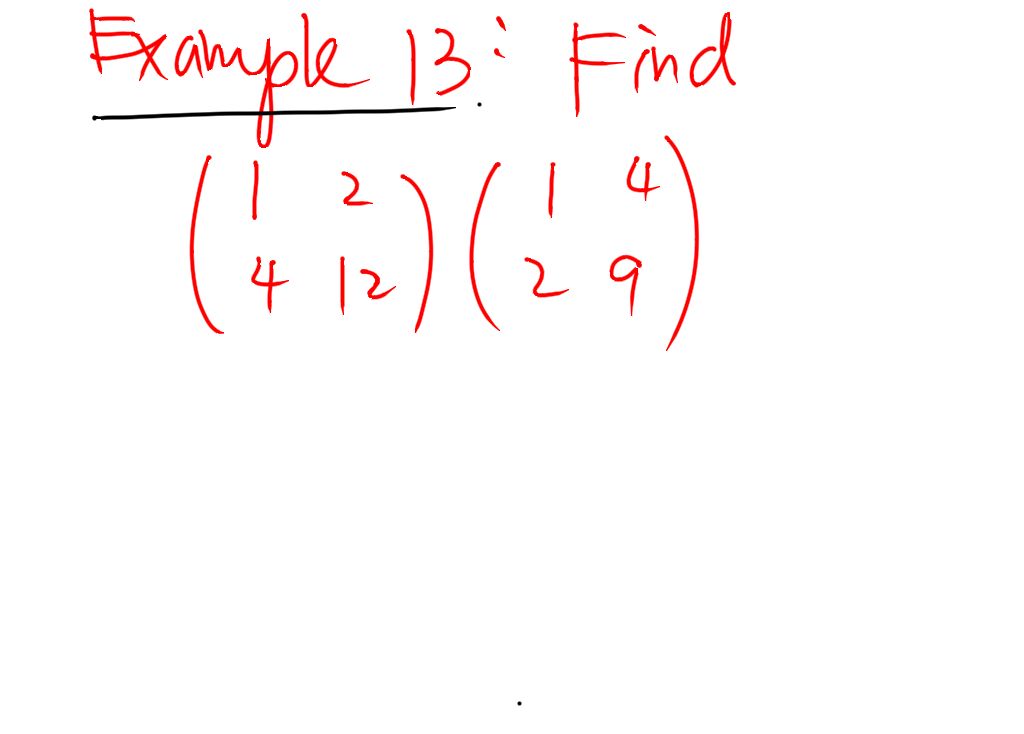 Example 13: Find
( 1 2 ) ( 1 4 )
( 4 12 ) ( 2 9 )